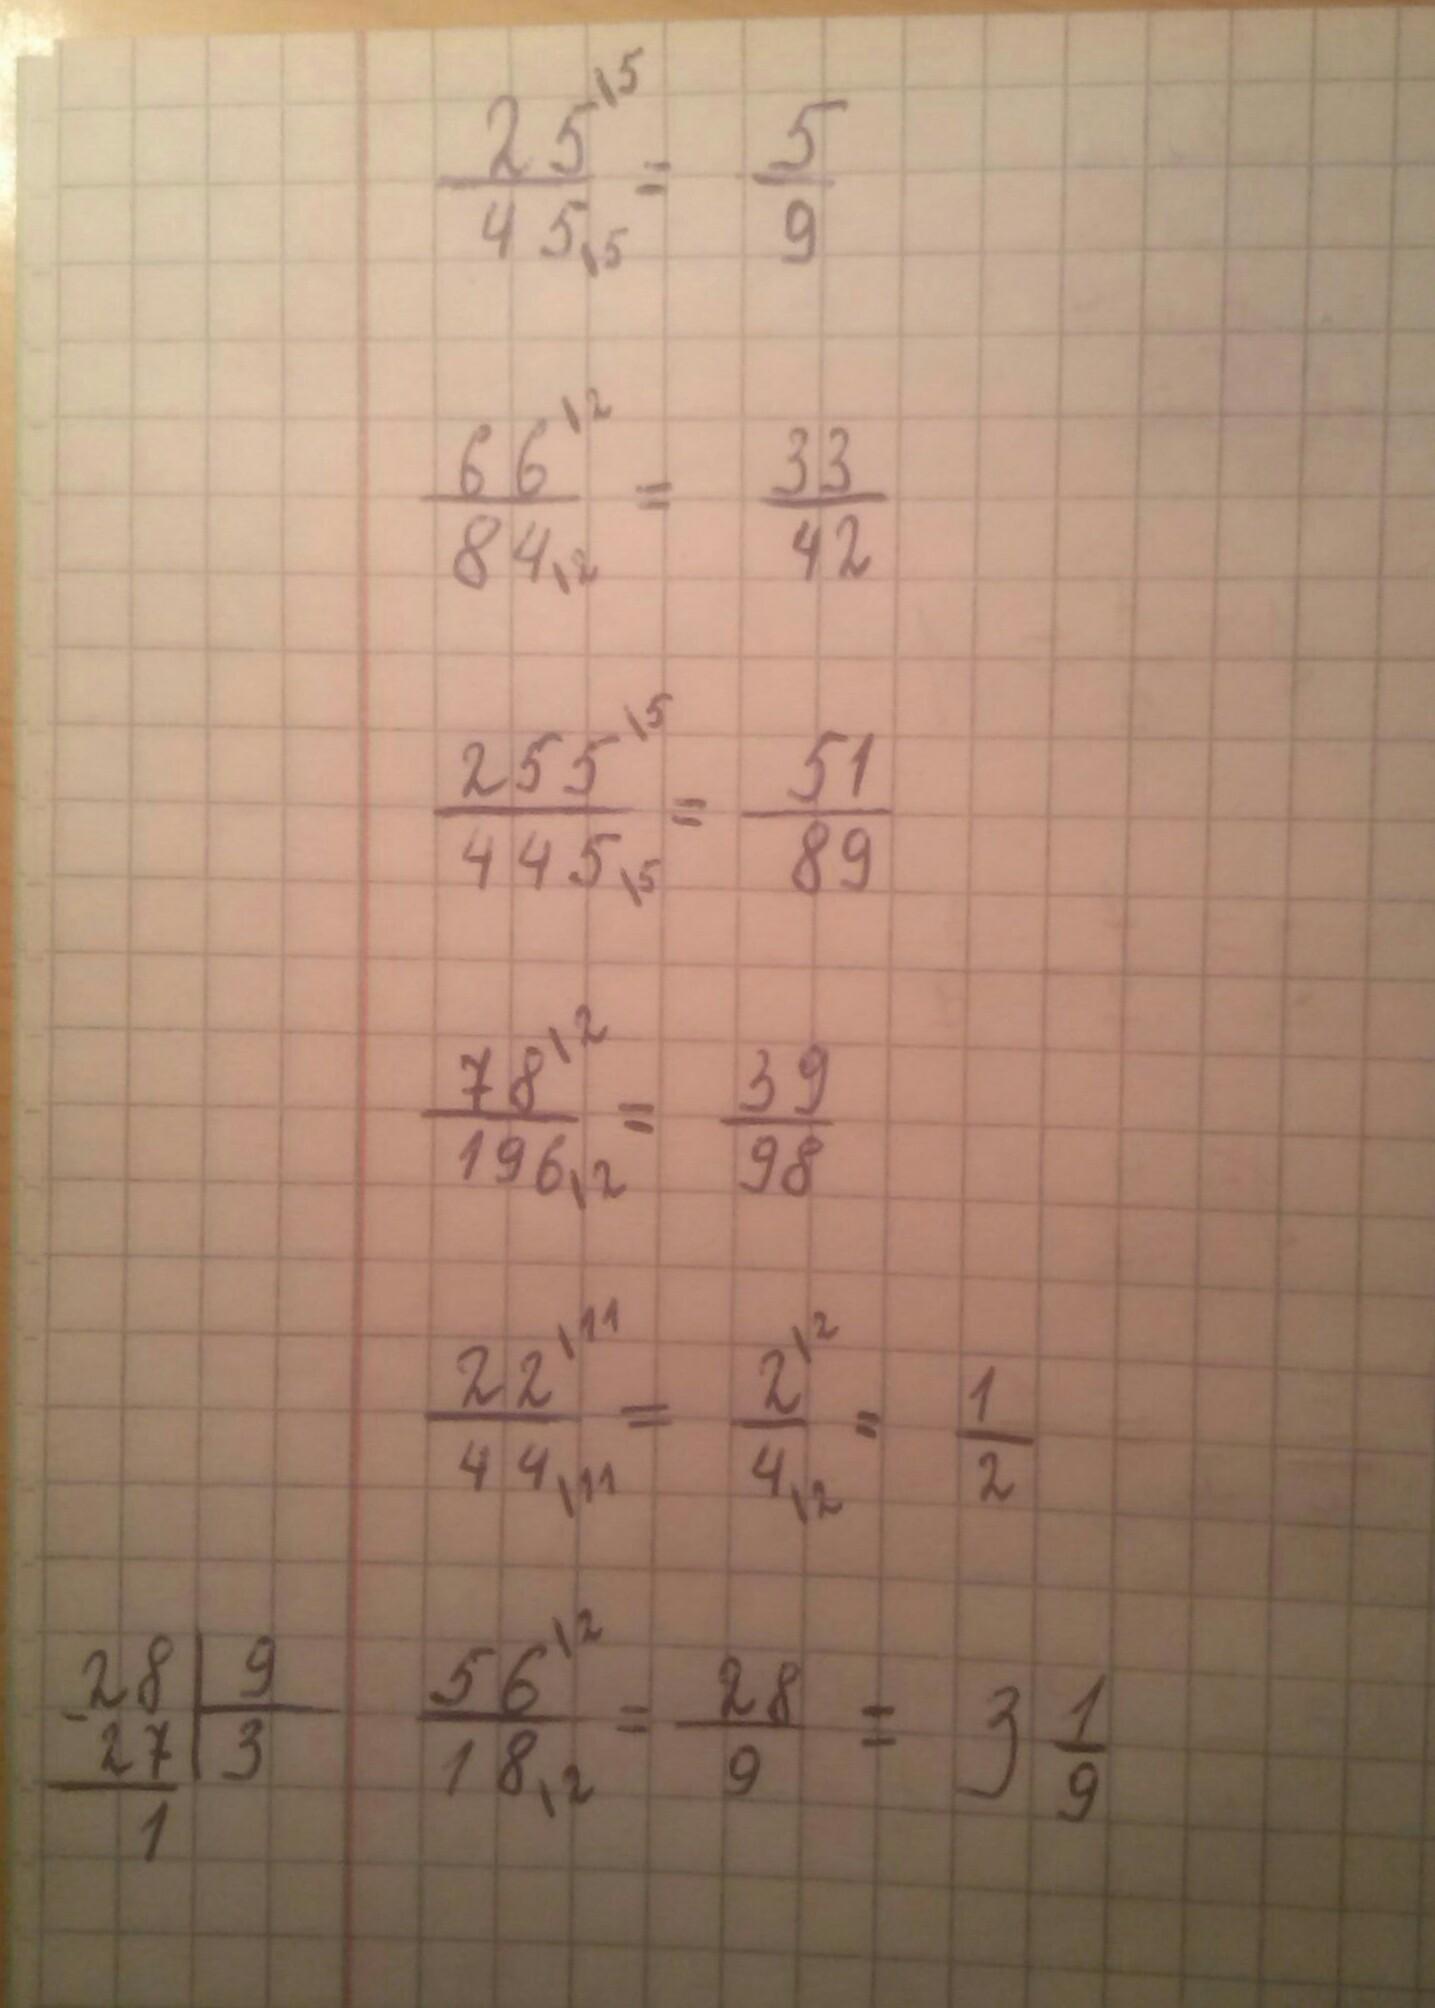 25\5 / 45\5 = 5/9
66\2 / 84\2 = 33/42
255\5 / 445\5 = 51/89
78\2 / 196\2 = 39/98
22\11 / 44\11 = 2\2 / 4\2 = 1/2
28 | 9
- 27 | 3
1
56\2 / 18\2 = 28/9 = 3 1/9